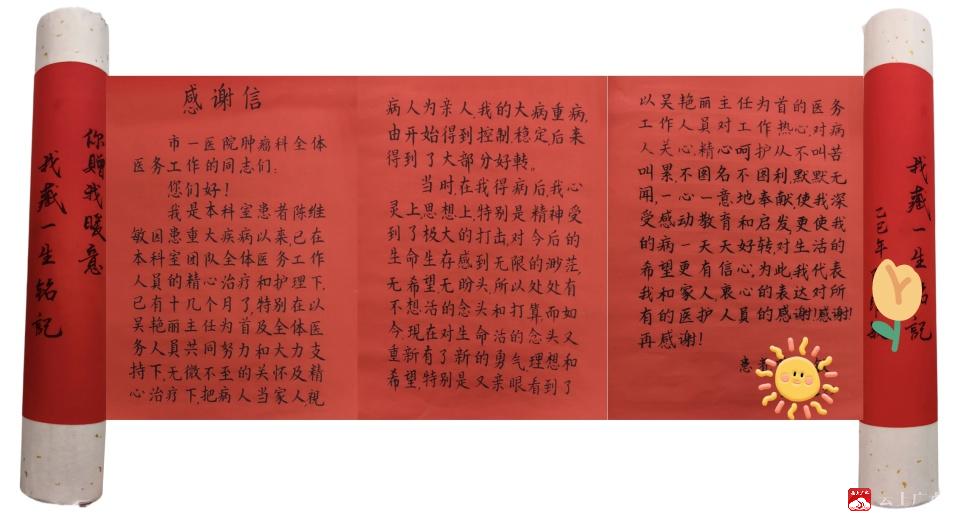 你赠我暖意
我藏一生铭记
感谢信
市一医院肿瘤科全体
医务工作的同志们:
您们好!
我是本科室患者陈维
敏因患重大疾病以来,已在
本科室团队全体医务工作
人员的精心治疗和护理下,
已有十几个月了,特别在以
吴艳丽主任为首及全体医
务人员共同努力和大力支
持下,无微不至的关怀及精
心治疗下,把病人当家人,视
病人为亲人,我的大病重病,
由开始得到控制,稳定后来
得到了大部分好转。
当时,在我得病后,我心
灵上思想上,特别是精神受
到了极大的打击,对今后的
生命生存感到无限的渺茫,
无希望无盼头,所以处处有
不想活的念头和打算而如
今,现在对生命活的念头又
重新有了新的勇气,理想和
希望,特别是又亲眼看到了
以吴艳丽主任为首的医务
工作人员对工作热心,对病
人关心,精心呵护从不叫苦
叫累,不图名不图利,默默无
闻,一心一意地奉献,使我深
受感动教育和启发,更使我
的病一天天好转,对生活的
希望更有信心,为此,我代表
我和家人,衷心的表达对所
有的医护人员的感谢!感谢!
再感谢!
患者
我藏一生铭记
乙巳年
云上广